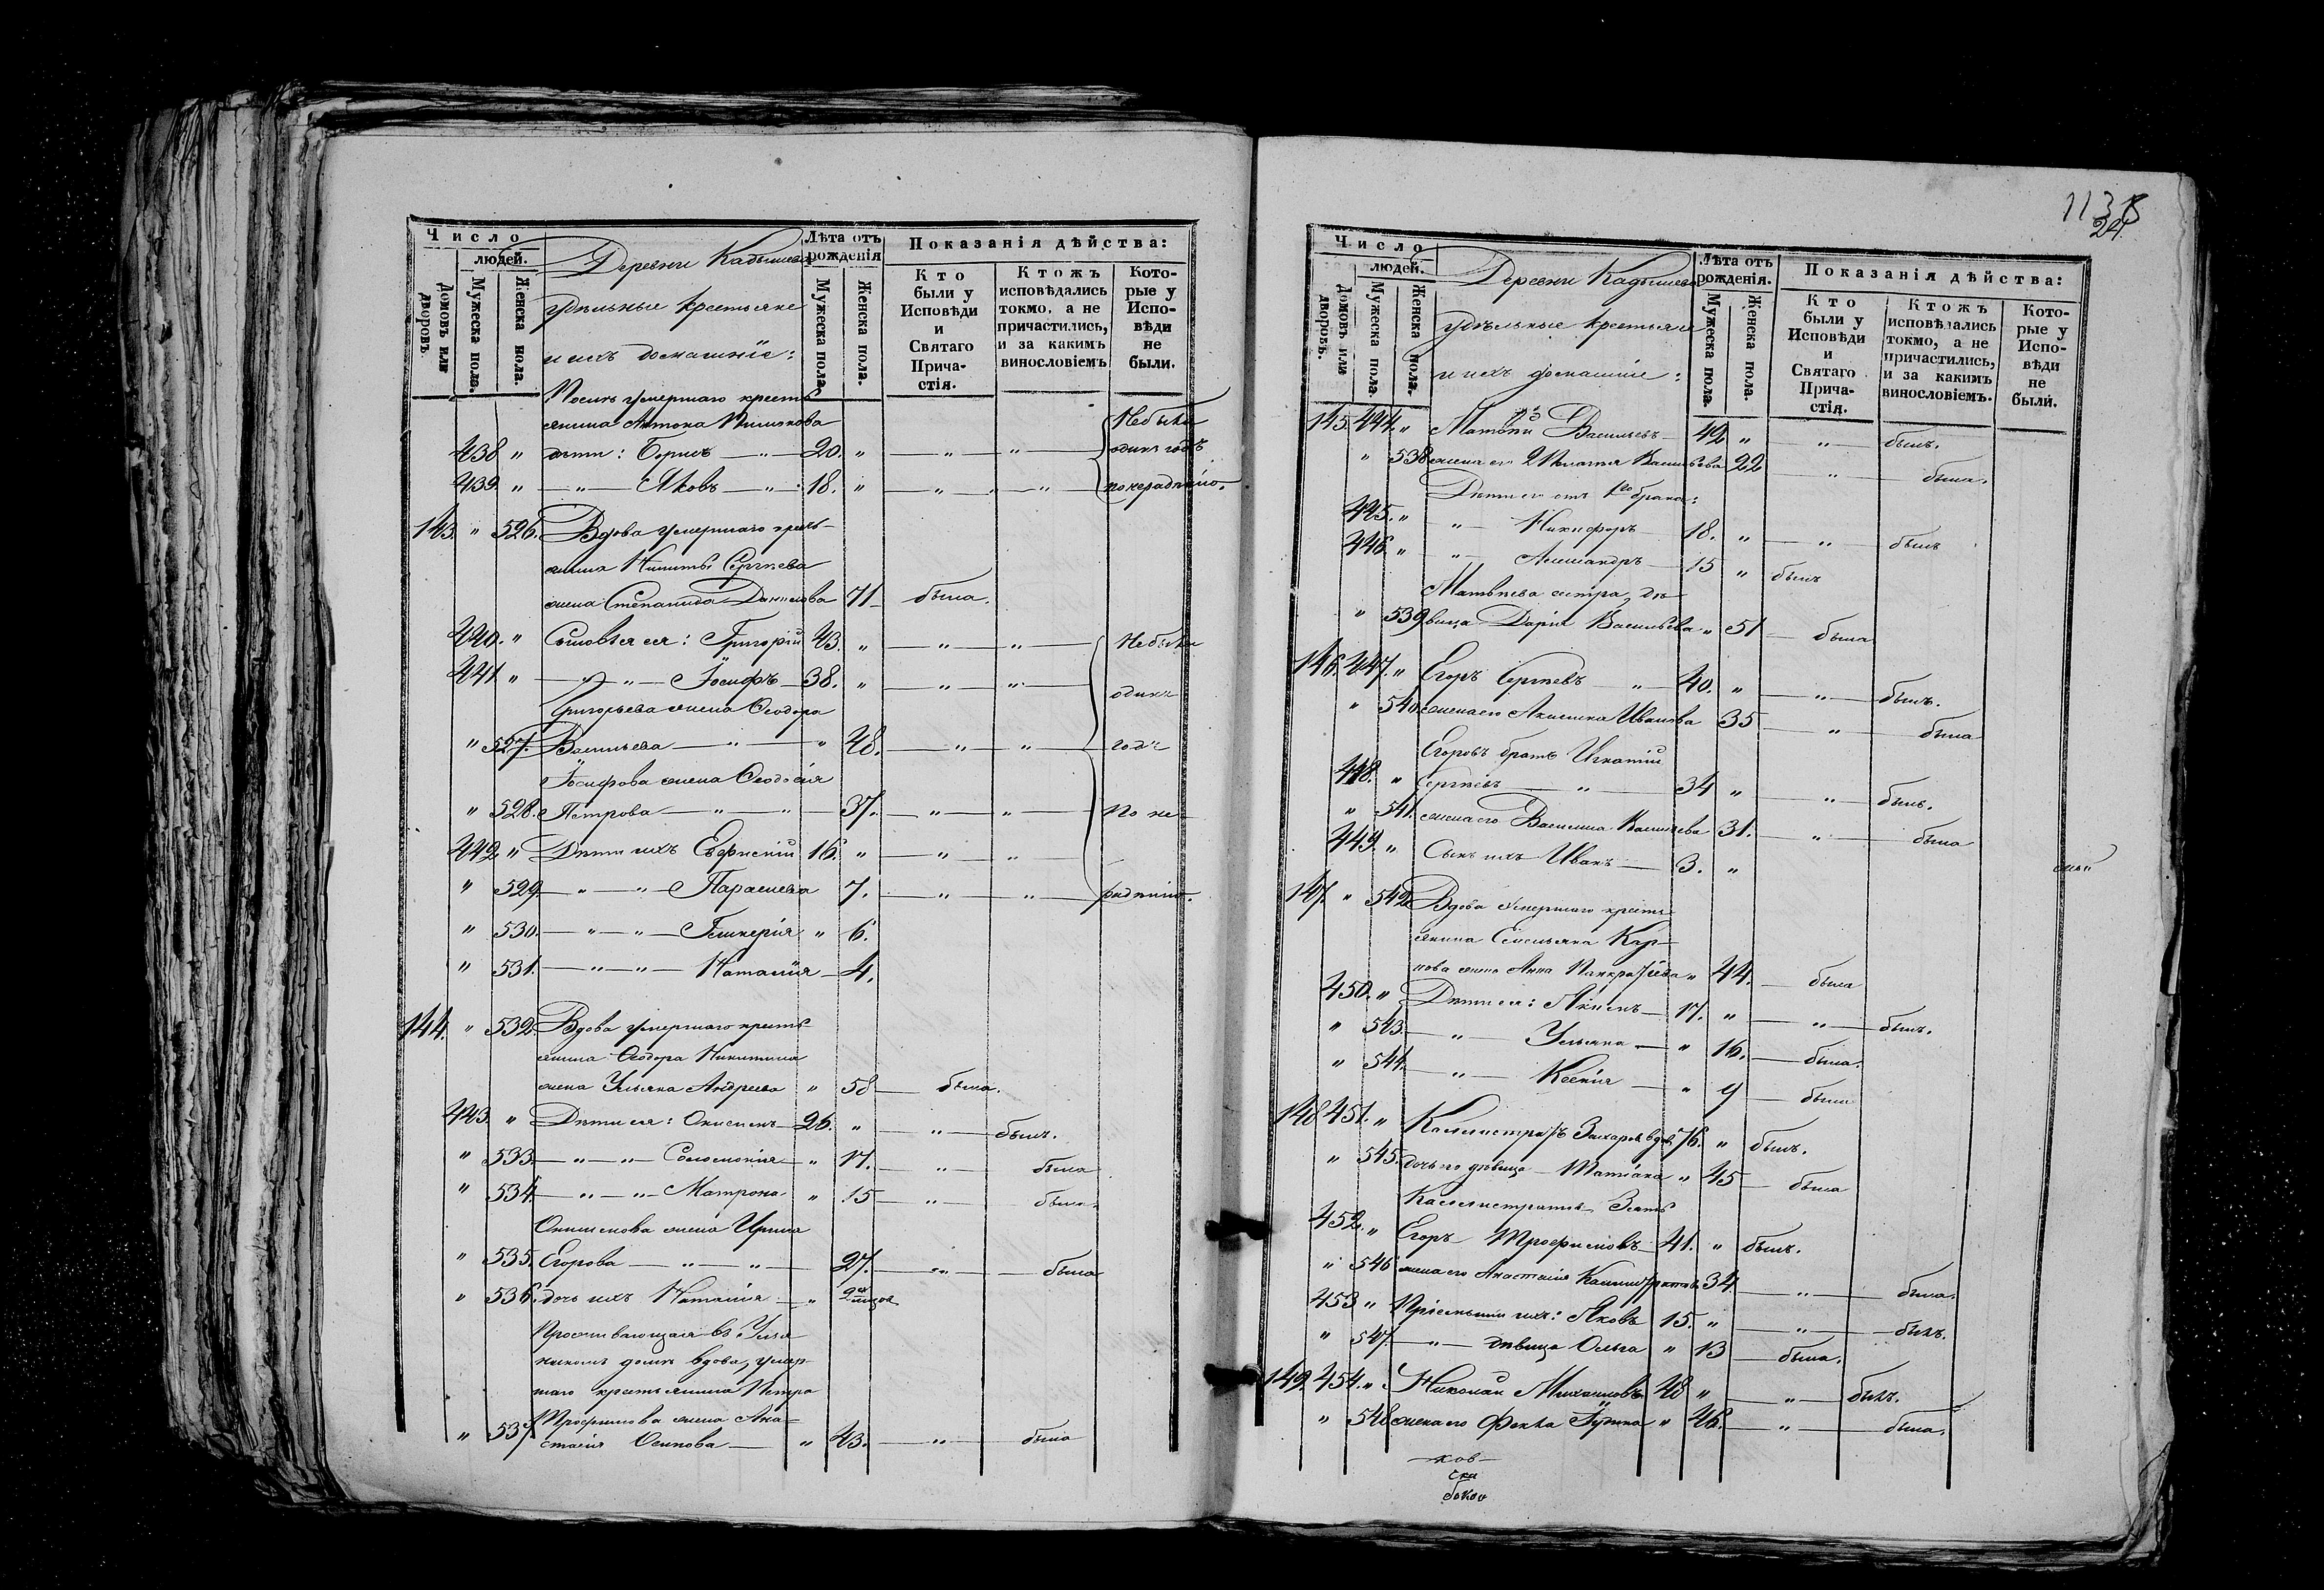 Число
людей.
Домовъ или дворовъ.
Мужеска пола.
Женска пола.
Деревни Кадышева
удѣльные крестьяне
и ихъ домашніе:
Лѣта отъ рожденія
Мужеска пола.
Женска пола.
Показанія дѣйства:
Кто были у Исповѣди и Святаго Причастія.
Ктожъ исповѣдались токмо, а не причастились, и за какимъ винословіемъ
Которые у Исповѣди не были.
Послѣ умершаго кресть-
янина Антона
438 " дѣти: Борисъ — " — 20. " — " — " — Не были одинъ годъ
439. " — " — Яковъ — " — 18. " — " — " — по нерадѣнію.
143. " 526. Вдова умершаго кресть-
янина Никиты Сергѣева
жена Степанида Данилова 71 — была.
440. " Сыновья ея: Григорій 43. " — " — " — Не были
441. " — " — " — Іосифъ — 38. " — " — " — одинъ
Григорьева жена Ѳеодора
" 527. Васильева — " — " 48. — " — " — годъ
Іосифова жена Ѳеодосія
" 528. Петрова — " — " — 37. — " — " — по не-
442. " Дѣти ихъ 16. " — " — "
" 529. — " — " — Параскева 7. — " — " — радѣнію.
" 530. — " — " — Гликерія " 6.
" 531. — " — " — Наталія — 4.
144. " 532. Вдова умершаго кресть-
янина Ѳеодора Никитина
жена Ульяна Андреева " 58 — была.
443. " Дѣти ея: Онисимъ — 26. " — " — былъ.
" 533. — " — " — Соломонія — " 17. — " — была
" 534. — " — " — Матрона " 15 — " — была.
Онисимова жена Ирина
" 535. Егорова — " — " — 27. — " — была
" 536. дочь ихъ Наталія — "
Проживающая въ
домѣ вдова, умер-
шаго крестьянина Петра
Трофимова жена Ана-
" 537 стасія Осипова — " 43. — " — была
1138
24
Число
людей.
Домовъ или дворовъ.
Мужеска пола.
Женска пола.
Деревни Кадышева
удѣльные крестьяне
и ихъ домашніе:
Лѣта отъ рожденія.
Мужеска пола.
Женска пола.
Показанія дѣйства:
Кто были у Исповѣди и Святаго Причастія.
Ктожъ исповѣдались токмо, а не причастились, и за какимъ винословіемъ.
Которые у Исповѣди не были.
145. 444. " Васильевъ — 42. " — " — былъ.
" 538 жена его 2 Васильева 22 — " — была.
Дѣти его отъ 1го брака:
445. " — " — Никифоръ — 18. " — " — былъ
446. " — " — Александръ — 15 " былъ
Матвѣева сестра, дѣ-
" 539 вица Дарія Васильева " 51 — была
146. 447. " Егоръ Сергѣевъ — " — 40. " — " — былъ.
" 540. жена его Акилина Иванова 35 — " — была
Егоровъ братъ Игнатій
448. " Сергѣевъ — " — 34 " — " — былъ.
" 541. жена его Василиса Васильева 31. — " — была
449. " Сынъ ихъ Иванъ — 3. "
147. " 542. Вдова умершаго кресть-
янина Емельяна Кар-
пова жена Анна Панкратьева " 44. — была
450. " Дѣти ея: Акимъ — 17. " — " — былъ.
" 543. — " — Ульяна — " 16. — была.
" 544. — " — Ксенія — " 9 — была
148 451. " Каллистратъ Захаровъ вдов. 76. " былъ.
" 545. дочь его дѣвица — Татіана " 45 — была
Каллистратовъ Зять
452. " Егоръ Трофимовъ — 41. " былъ.
" 546 жена его Анастасія Каллистратова 34 — " — была.
453 " Пріемыши ихъ: Яковъ 15. " — " — былъ.
" 547. — " — дѣвица Ольга " 13 — была.
149. 454. " Николай Михайловъ 48 " — " — былъ.
" 548 жена его Фекла " 46. — " — была.